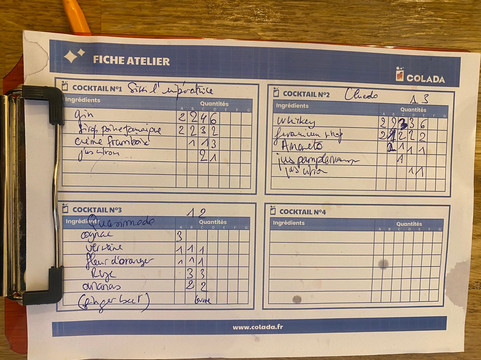 FICHE ATELIER
COLADA
COCKTAIL N°1 Sissi l'impératrice
Ingrédients Quantités
gin 2 2 4 6
Sirop poivre 2 2 3 2
crème framboise 1 1 3
jus citron 2 1
COCKTAIL N°2 Cluedo 1 3
Ingrédients Quantités
whiskey 2 2 3 3 6
sirop 2 2 2 2
Amaretto 2 1 1 1
jus pamplemousse 1
jus citron 1 1
COCKTAIL N°3 Quasimodo 1 2
Ingrédients Quantités
cognac 3
verveine 1 1 1
fleur d'oranger 1 1 1
3 3
ananas 2 2
(ginger beer)
COCKTAIL N°4
Ingrédients Quantités
www.colada.fr